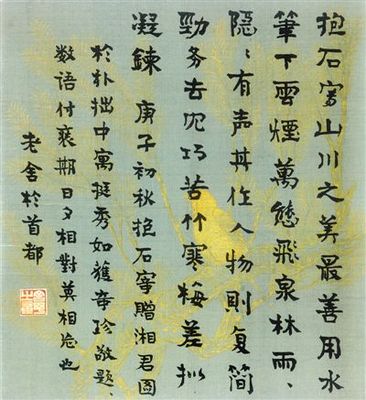 抱石寫山川之美最善用水
筆下雲煙萬態飛泉林雨、
隱、有声其作人物則复簡
勁务去冗巧苦竹寒梅差拟
凝鍊 庚子初秋抱石寄贈湘君图
於朴拙中寓挺秀如獲奇珍敬題、
数语付裱期日夕相對莫相忘也
老舍於首都